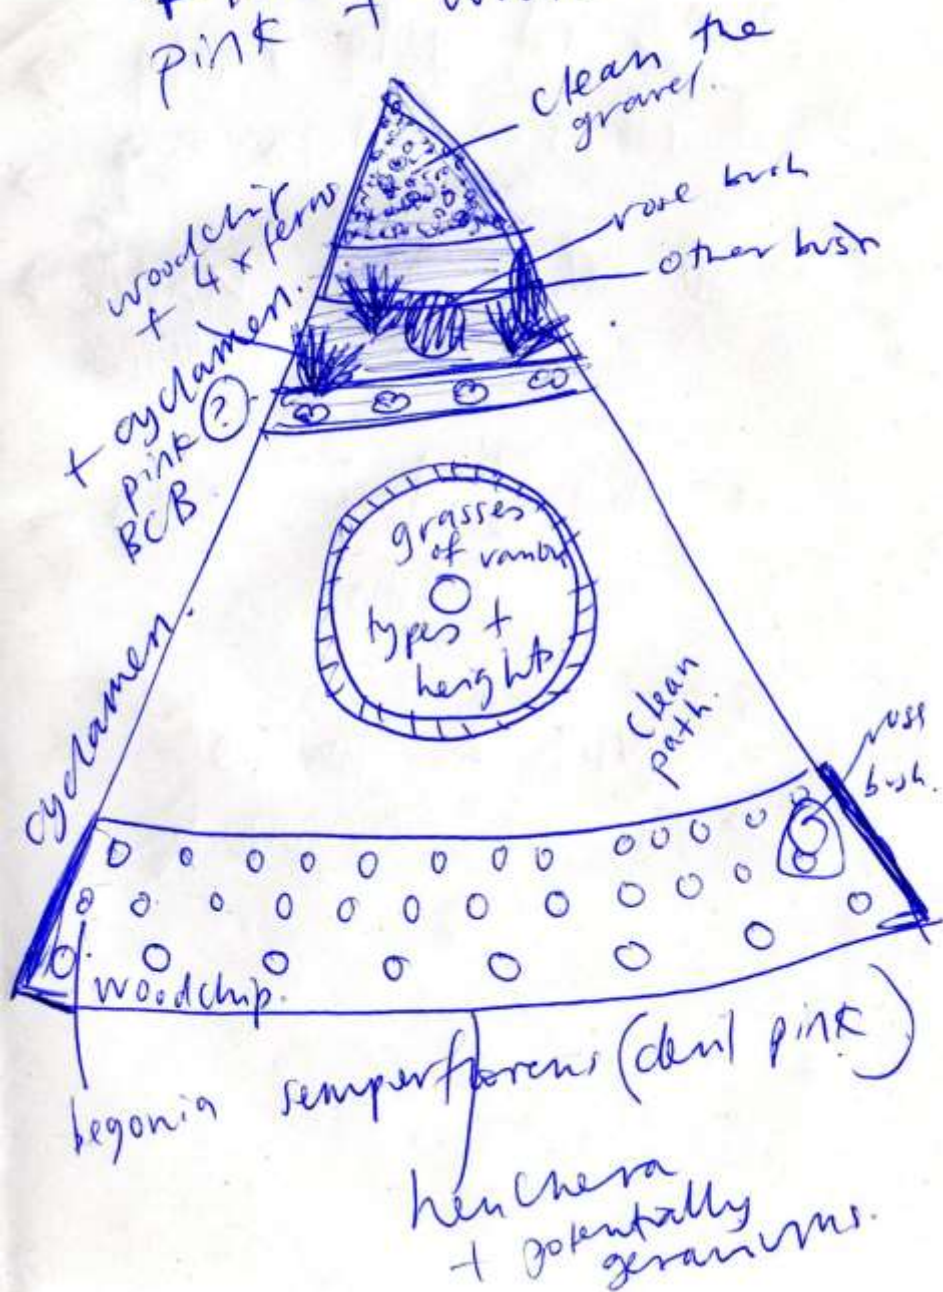 pink +
clean the
gravel.
rose bush
other bush
woodchip
+ 4 x ferns
+ cyclamen.
pink ?
BCB
grasses
of various
types +
heights
cyclamen.
clean
path.
bush.
woodchip.
begonia semperflorens (devil pink)
heuchera
+ potentially
geraniums.